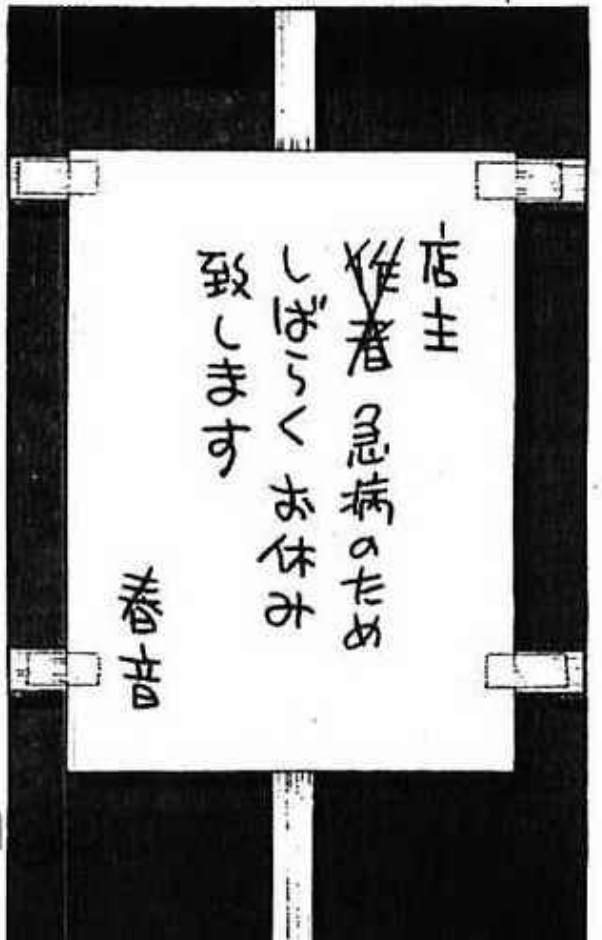 店主
作者 急病のため
しばらく お休み
致します
春音